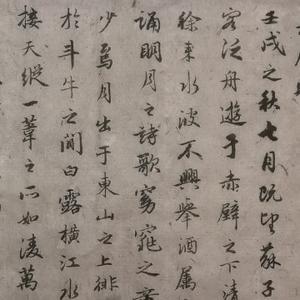 壬戌之秋七月既望蘇子
客泛舟遊于赤壁之下清
徐來水波不興舉酒属
誦明月之詩歌窈窕之章
少焉月出于東山之上徘
於斗牛之間白露橫江水
接天縱一葦之所如凌萬